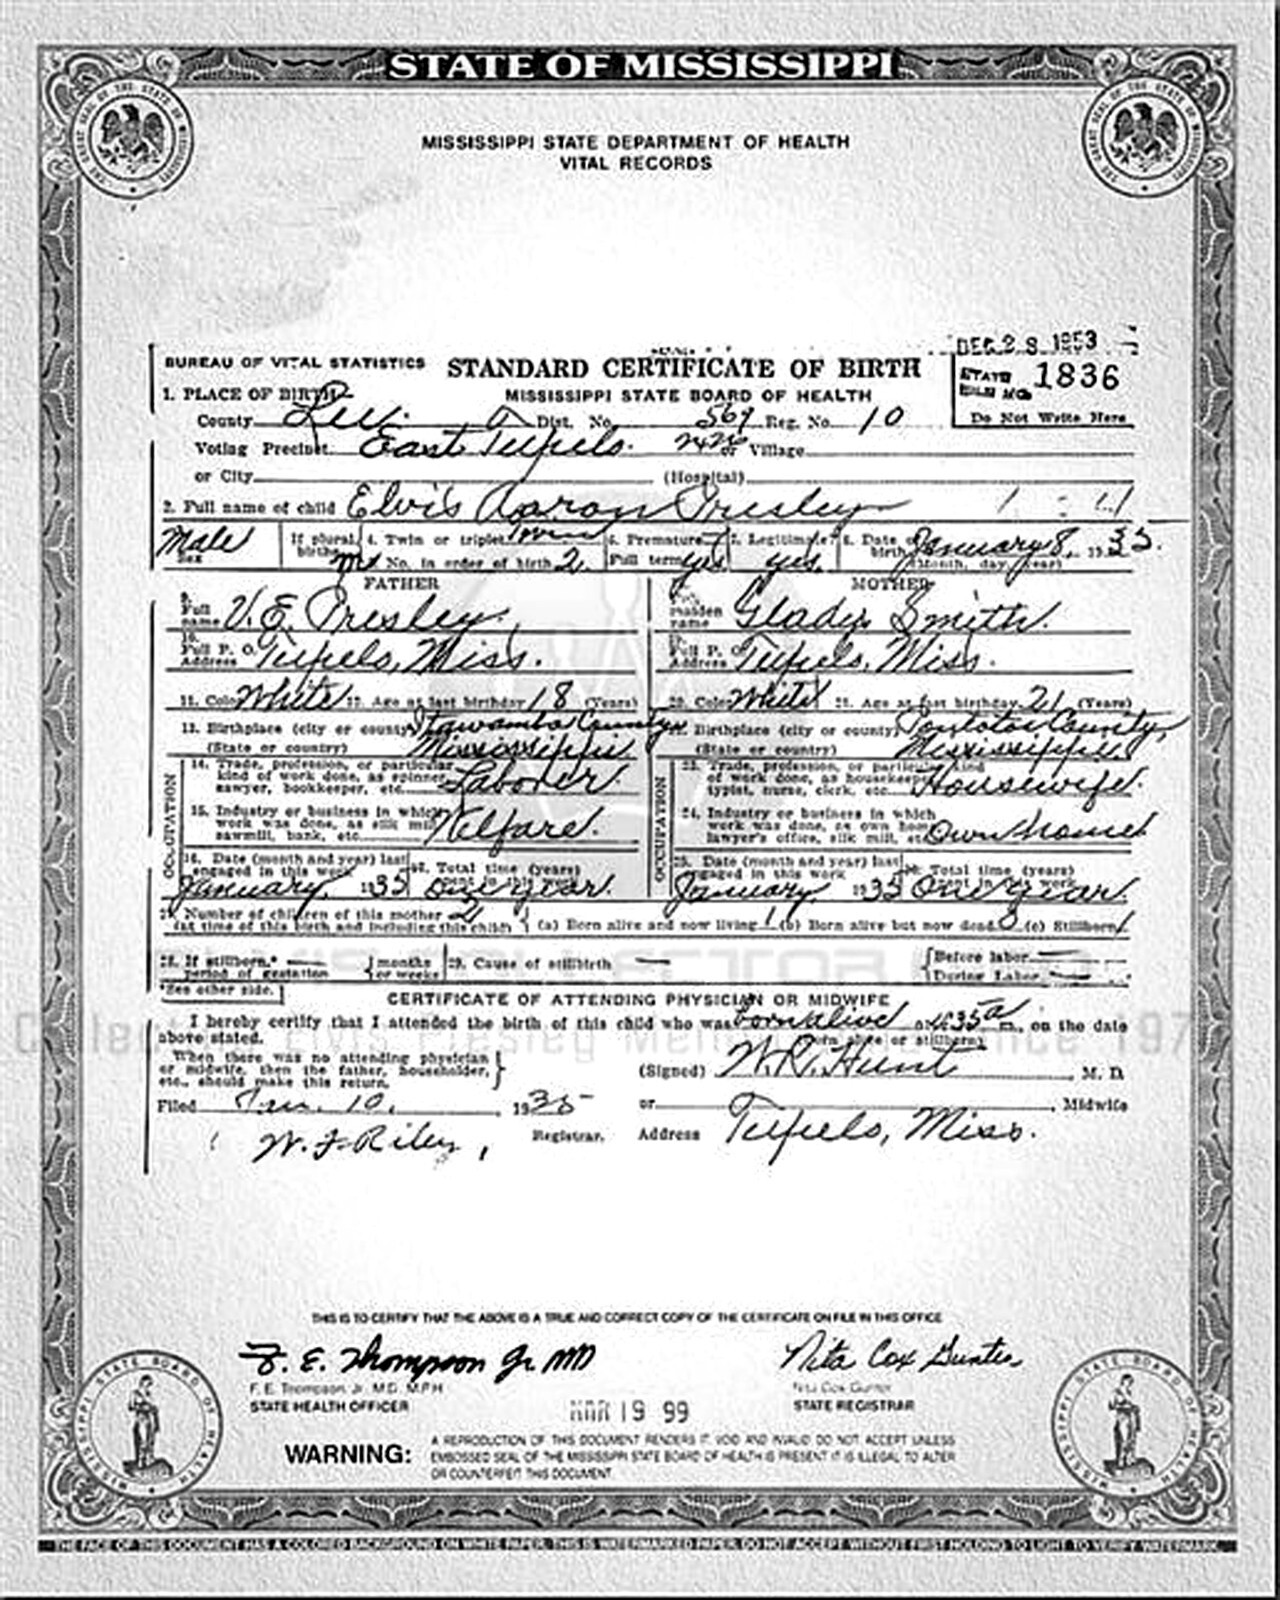 STATE OF MISSISSIPPI
MISSISSIPPI STATE DEPARTMENT OF HEALTH
VITAL RECORDS
DEC 28 1953
BUREAU OF VITAL STATISTICS STANDARD CERTIFICATE OF BIRTH
STATE 1836
1. PLACE OF BIRTH MISSISSIPPI STATE BOARD OF HEALTH
Do Not Write Here
County Lee Dist. No. 569 Reg. No. 10
Voting Precinct East Tupelo. or Village
or City (Hospital)
2. Full name of child Elvis Aaron Presley
Male Sex If plural births 4. Twin or triplet Twin 6. Premature 7. Legitimate? 8. Date of birth January 8, 1935.
No. in order of birth 2 Full term yes yes. (Month, day, year)
FATHER MOTHER
9. Full name V. E. Presley maiden name Gladys Smith.
10. Full P. O. Address Tupelo, Miss. Full P. O. Address Tupelo, Miss.
11. Color White 12. Age at last birthday 18 (Years) 20. Color White 21. Age at last birthday 21 (Years)
13. Birthplace (city or county) Itawamba County 22. Birthplace (city or county) Pontotoc County,
(State or country) Mississippi (State or country) Mississippi.
OCCUPATION 14. Trade, profession, or particular kind of work done, as spinner, sawyer, bookkeeper, etc. Laborer OCCUPATION 23. Trade, profession, or particular kind of work done, as housekeeper, typist, nurse, clerk, etc. Housewife.
15. Industry or business in which work was done, as silk mill, sawmill, bank, etc. Welfare. 24. Industry or business in which work was done, as own home, lawyer's office, silk mill, etc. Own home.
16. Date (month and year) last engaged in this work January, 1935 17. Total time (years) spent in this work one year. 25. Date (month and year) last engaged in this work January, 1935 26. Total time (years) spent in this work One year.
27. Number of children of this mother 2
(at time of this birth and including this child) (a) Born alive and now living 1 (b) Born alive but now dead 0 (c) Stillborn 1
28. If stillborn,* period of gestation months or weeks 29. Cause of stillbirth Before labor During Labor
*See other side.
CERTIFICATE OF ATTENDING PHYSICIAN OR MIDWIFE
I hereby certify that I attended the birth of this child who was born alive at 435a m., on the date
above stated. (Born alive or stillborn)
When there was no attending physician
or midwife, then the father, householder,
etc., should make this return.
(Signed) W. R. Hunt M. D.
Filed Jan. 10, 1935 or Midwife
W. F. Riley, Registrar. Address Tupelo, Miss.
THIS IS TO CERTIFY THAT THE ABOVE IS A TRUE AND CORRECT COPY OF THE CERTIFICATE ON FILE IN THIS OFFICE
F. E. Thompson Jr. MD Nita Cox Gunter
F. E. Thompson Jr. M.D. M.P.H. Nita Cox Gunter
STATE HEALTH OFFICER MAR 19 99 STATE REGISTRAR
WARNING: A REPRODUCTION OF THIS DOCUMENT RENDERS IT VOID AND INVALID. DO NOT ACCEPT UNLESS
EMBOSSED SEAL OF THE MISSISSIPPI STATE BOARD OF HEALTH IS PRESENT. IT IS ILLEGAL TO ALTER
OR COUNTERFEIT THIS DOCUMENT.
THE FACE OF THIS DOCUMENT HAS A COLORED BACKGROUND ON WHITE PAPER. THIS IS WATERMARKED PAPER. DO NOT ACCEPT WITHOUT FIRST HOLDING TO LIGHT TO VERIFY WATERMARK.